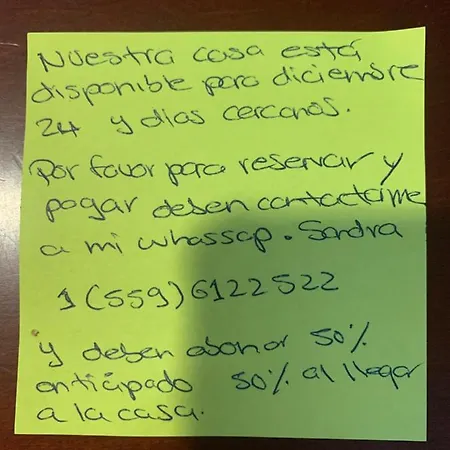 Nuestra casa está
disponible para diciembre
24 y días cercanos.
Por favor para reservar y
pagar deben contactarme
a mi whassap. Sandra
1 (559) 6122522
y deben abonar 50%
anticipado 50% al llegar
a la casa.